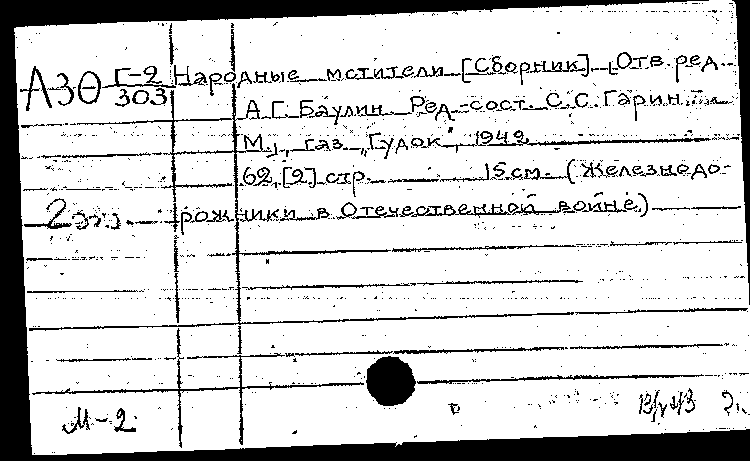 АЗӨ Г-2/303 Народные мстители [Сборник] Отв. ред.
А.Г. Баулин. Ред.-сост. С.С. Гарин.
М., газ. „Гудок", 1942
62, [2] стр. 15 см. (Железнодо-
2 экз. рожники в Отечественной войне)
М-2